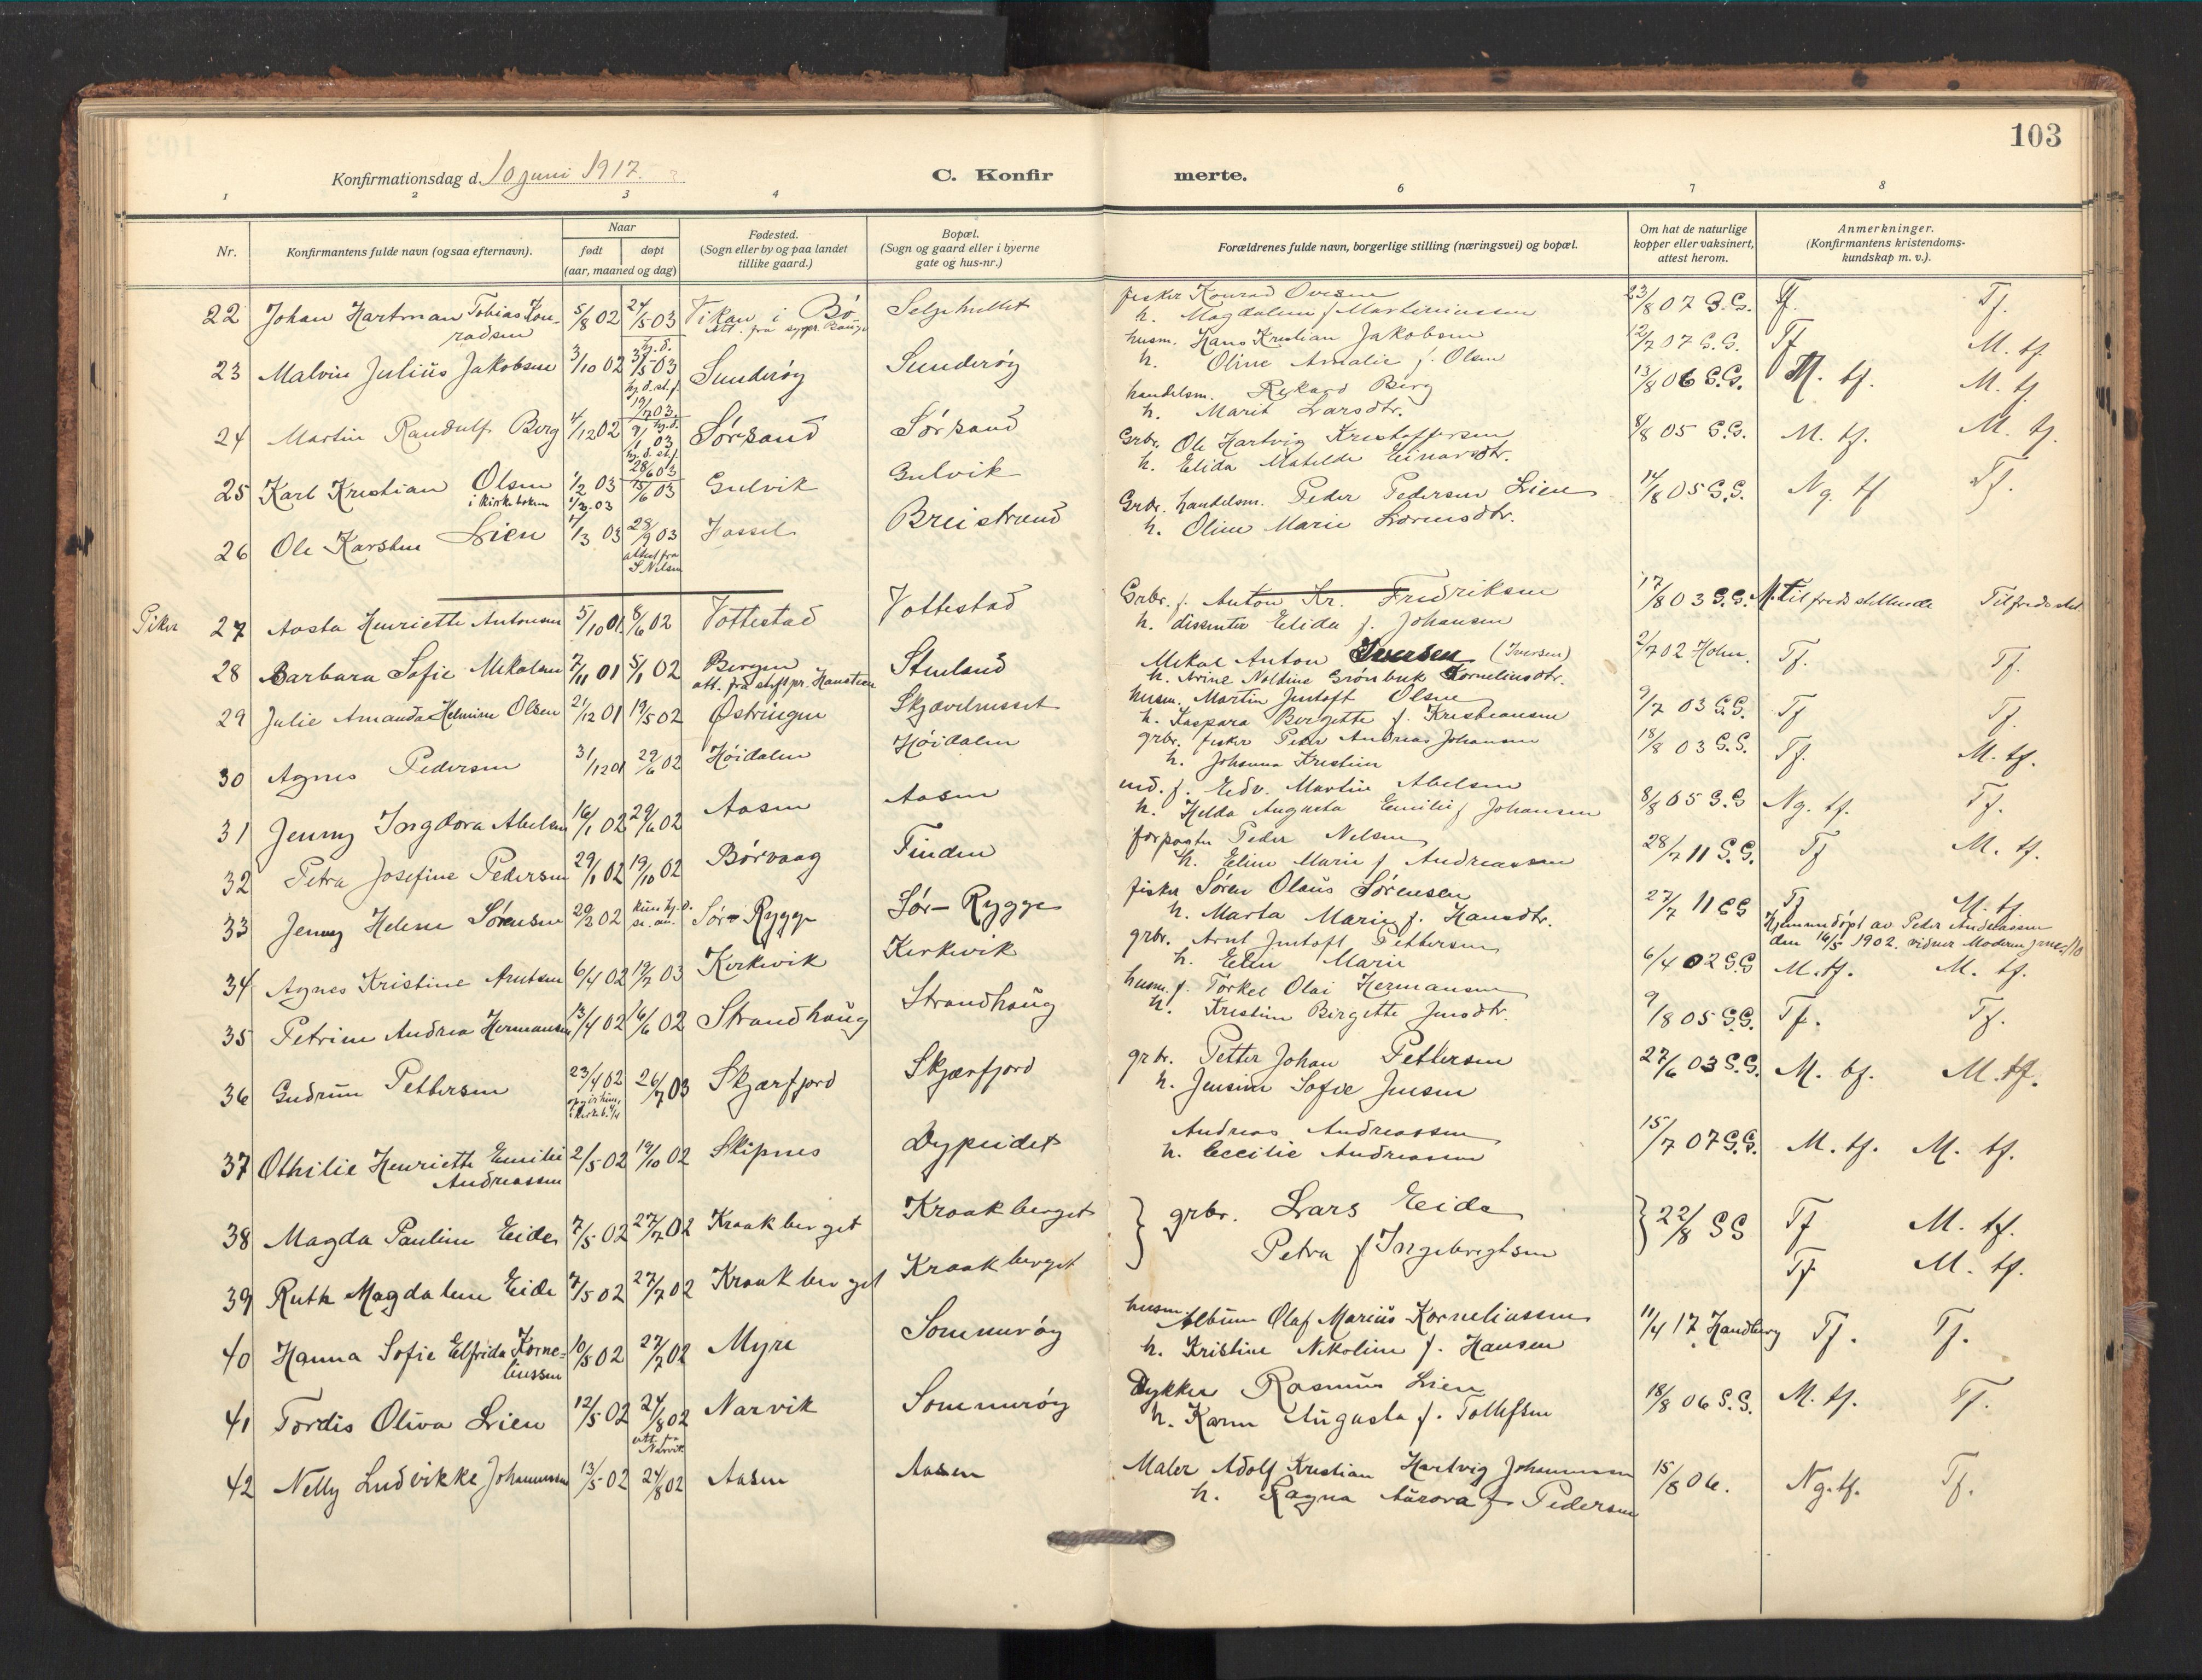 103
Konfirmationsdag d. 10 juni 1917.
C. Konfirmerte.
1 2 3 4 6 7 8
Nr.
Konfirmantens fulde navn (ogsaa efternavn).
Naar
født
døpt
(aar, maaned og dag)
Fødested.
(Sogn eller by og paa landet
tillike gaard.)
Bopæl.
(Sogn og gaard eller i byerne
gate og hus-nr.)
Forældrenes fulde navn, borgerlige stilling (næringsvei) og bopæl.
Om hat de naturlige
kopper eller vaksinert,
attest herom.
Anmerkninger.
(Konfirmantens kristendoms-
kundskap m. v.).
22 Johan Hartman Tobias Kon- 5/8 02 24/5 03 Vikan i Bø Seljehullet fisker Konrad Ovesen 23/8 07 S.S. Tf. Tf.
radsen h. Magdalena f Martinussen
23 Malvin Julius Jakobsen 3/10 02 31/5 03 Sunderøy Sunderøy husm. Hans Kristian Jakobsen 12/7 07 S.S. Tf M. tf
hj. d. st. f. h. Oline Amalie f. Olsen
24 Martin Randulf Berg 4/12 02 Sørsand Sørsand handelsm. Rikard Berg 13/8 06 S.S. M. tf. M. tf
h. Marit Larsdtr.
25 Karl Kristian Olsen 1/2 03 15/6 03 Gulvik Gulvik Grbr. Ole Hartvig Kristoffersen 8/8 05 S.S. M. tf. M. tf.
i kirkeboken 1/3.03 h. Elida Matelde Einarsdtr.
26 Ole Karsten Lien 17/3 03 28/9 03 Jossel Breistrand Grbr. handelsm. Peder Pedersen Lien 14/8 05 S.S. Ng. tf Tf.
attest fra S. Nilsen h. Oline Marie Lorensdtr.
Piker 27 Aasta Henriette Antonsen 5/10 01 8/6 02 Vottestad Vottestad Grbr. f. Anton Kr. Fredriksen 17/8 03 S.S. M. Tilfredsstillende Tilfredsstil.
h. dissenter Elida f. Johansen
28 Barbara Sofie Mikalsen 7/11 01 5/1 02 Bergen Stenland Mikal Anton Iversen (Iversen) 2/7 02 Holm. Tf. Tf.
att. fra stiftspr. Hansteen h. Arine Noldine Grønbuk Kornelinsdtr.
29 Julie Amanda Helmine Olsen 21/12 01 19/5 02 Østringen Skjævelnesset husm. Martin Jentoft Olsen 9/7 03 S.S. Tf Tf.
h. Kaspara Bergette f. Kristiansen
30 Agnes Pedersen 31/12 01 29/6 02 Høidalen Høidalen grbr. fisker Peder Andreas Johansen 18/8 03 S.S. Tf. M. tf.
h. Johanna Kristine
31 Jenny Ingdora Abelsen 16/1 02 29/6 02 Aasen Aasen ind. f. Edv. Martin Abelsen 8/8 05 S.S Ng. tf. Tf.
h. Helda Augusta Emilie f Johansen
32 Petra Josefine Pedersen 29/1 02 19/10 02 Børvaag Finden forpagter Peder Nelsen 28/7 11 S.S. Tf M. tf.
h. Eline Marie f Andreassen
33 Jenny Helene Sørensen 20/3 02 kun hj. d. se. an. Sør-Rygge Sør-Rygge fisker Søren Olaus Sørensen 27/7 11 SS Tf M. tf
h. Marta Marie f. Hansdtr. Hjemmedøpt av Peder Andreassen
den 16/5 1902. vidner Moderen
34 Agnes Kristine Arntsen 6/4 02 19/7 03 Kirkevik Kirkevik grbr. Arnt Jentoft Pettersen 6/4 02 S.S M. tf. M. tf.
h. Elen Marie
35 Petrine Andrea Hermansen 13/4 02 16/6 02 Strandhaug Strandhaug husm. f. Torkel Olai Hermansen 9/8 05 S.S. Tf. Tf.
h. Kristine Birgitte Jensdtr.
36 Gudrun Pettersen 23/4 02 26/7 03 Skjærfjord Skjærfjord grbr. Petter Johan Pettersen 27/6 03 S.S. M. tf. M. tf.
h. Jensine Sofie Jensen
37 Othilie Henriette Emilie 2/5 02 19/10 02 Skipnes Dypeidet Andreas Andreassen 15/7 07 S.S. M. tf. M. tf.
Andreassen h. Cecilie Andreassen
38 Magda Pauline Eide 7/5 02 27/7 02 Kraakberget Kraakberget } grbr. Lars Eide } 22/8 SS Tf M. tf.
Petra f Ingebrigtsen
39 Ruth Magdalene Eide 7/5 02 27/7 02 Kraakberget Kraakberget Tf M. tf.
40 Hanna Sofie Elfrida Korne- 10/5 02 27/7 02 Myre Sommerøy husm. Olaf Marius Korneliussen 11/4 17 Handberg Tf. Tf.
liussen h. Kristine Nikoline f. Hansen
41 Tordis Oliva Lien 12/5 02 24/8 02 Narvik Sommerøy Dykker Rasmus Lien 18/8 06 S.S. M. tf. Tf.
att. fra Narvik h. Karen Augusta f. Tollefsen
42 Nelly Ludvikke Johannessen 13/5 02 24/8 02 Aasen Aasen Maler Adolf Kristian Hartvig Johannessen 15/8 06. Ng. tf. Tf.
h. Ragna Aurora f Pedersen